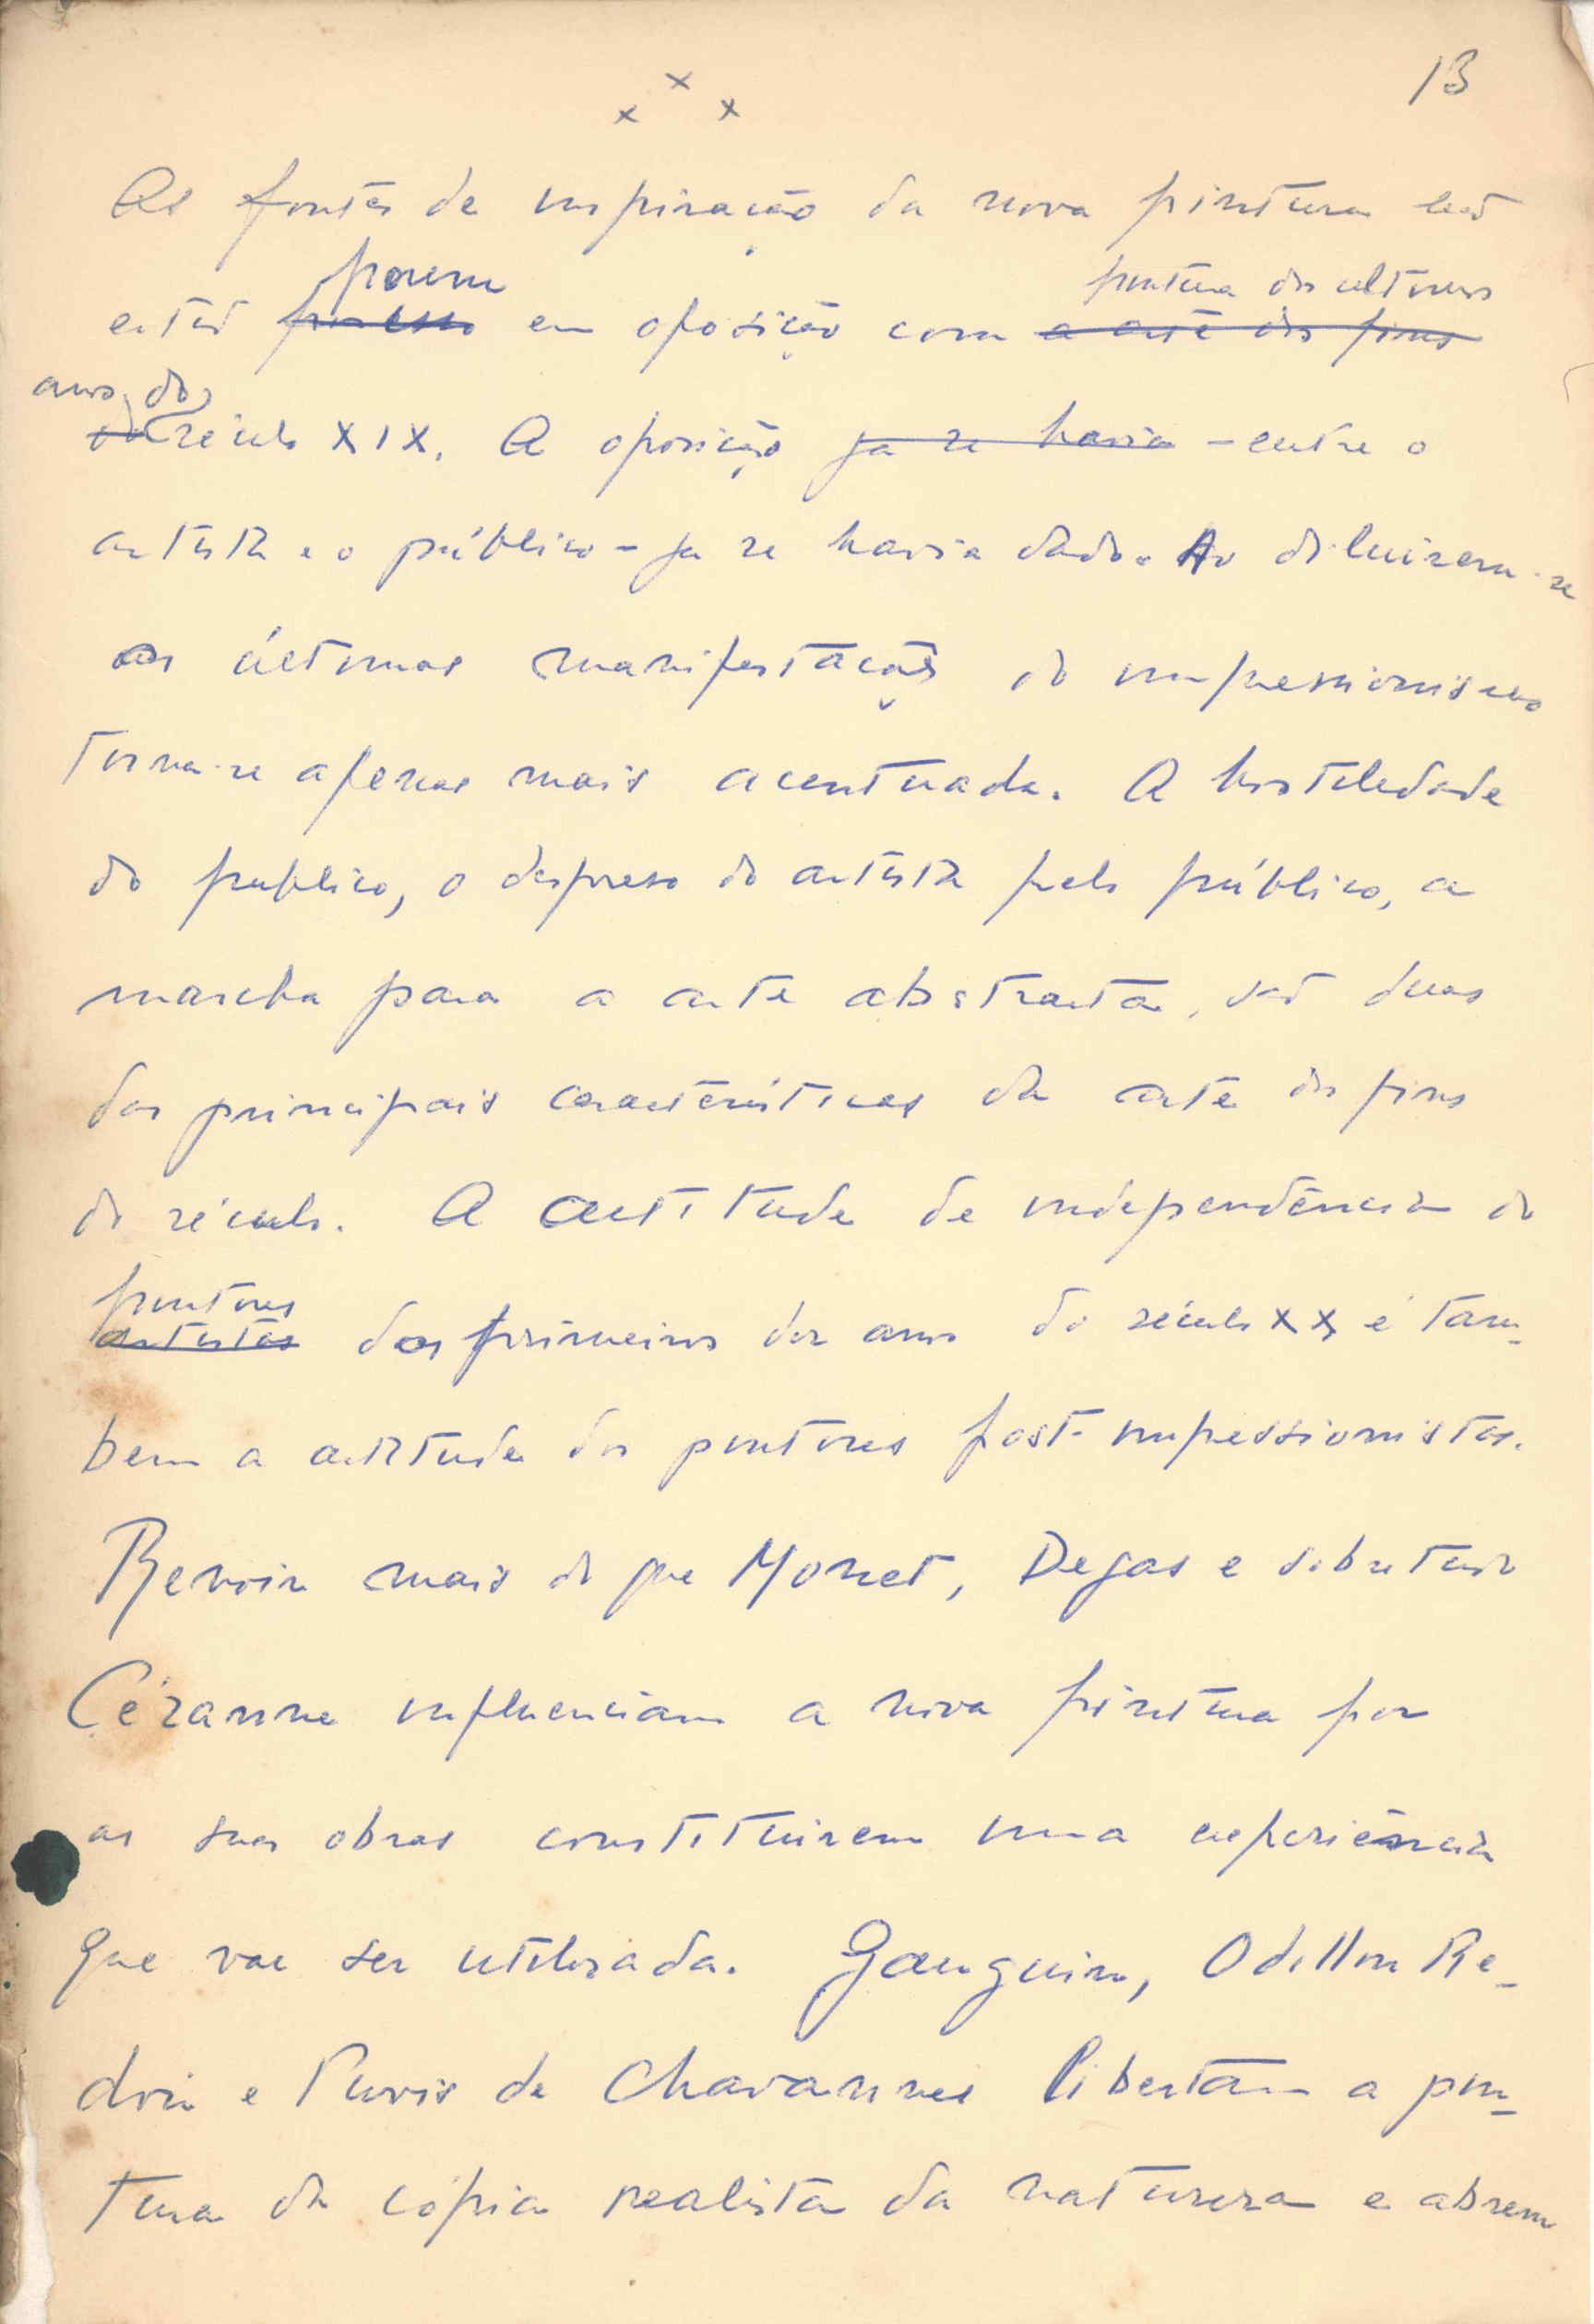 13
x x x
As fontes de inspiração da nova pintura não
porem pintura dos ultimos
estão por isso em oposição com a arte dos fins
anos do
do século XIX. A oposição ja se havia - entre o
artista e o público - ja se havia dado. Ao diluirem-se
as últimas manifestações do impressionismo
torna-se apenas mais acentuada. A hostilidade
do publico, o despreso do artista pelo público, a
marcha para a arte abstracta, são duas
das principais caracteristicas da arte dos fins
do século. A actitude de independência do
pintores
artistas dos primeiros dez anos do século XX, é tam-
bem a actitude dos pintores post-impressionistas.
Renoir mais do que Monet, Degas e sobretudo
Cézanne influenciam a nova pintura por
as suas obras constituirem uma experiência
que vae ser utilisada. Gauguin, Odillon Re-
don e Puvis de Chavannes libertam a pin-
tura da cópia realista da natureza e abrem